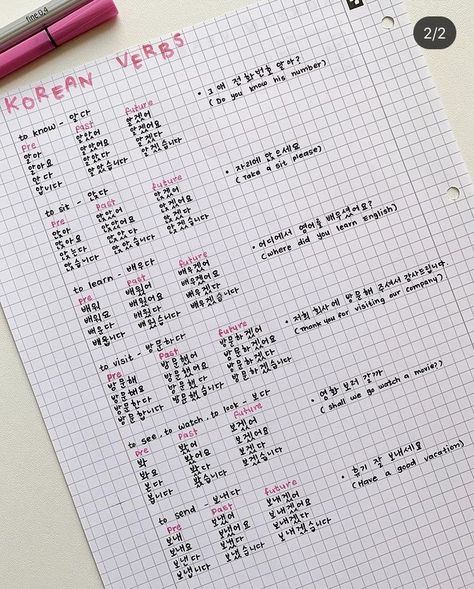 fine 0,4
2/2
KOREAN VERBS
to know - 알다
Pre Past Future
알아 알았어 알겠어
알아요 알았어요 알겠어요
안다 알았다 알겠다
압니다 알았습니다 알겠습니다
• 그 애 전화번호 알아?
( Do you know his number)
to sit - 앉다
Pre Past Future
앉아 앉았어 앉겠어
앉아요 앉았어요 앉겠어요
앉는다 앉았다 앉겠다
앉습니다 앉았습니다 앉겠습니다
• 자리에 앉으세요
( Take a sit please)
to learn - 배우다
Pre Past Future
배워 배웠어 배우겠어
배워요 배웠어요 배우겠어요
배운다 배웠다 배우겠다
배웁니다 배웠습니다 배우겠습니다
• 어디에서 영어를 배우셨어요?
(where did you learn English)
to visit - 방문하다
Pre Past Future
방문해 방문했어 방문하겠어
방문해요 방문했어요 방문하겠어요
방문한다 방문했다 방문하겠다
방문합니다 방문했습니다 방문하겠습니다
• 저희 회사에 방문해 주셔서 감사드립니다.
(Thank you for visiting our company)
to see, to watch, to look - 보다
Pre Past Future
봐 봤어 보겠어
봐요 봤어요 보겠어요
본다 봤다 보겠다
봅니다 봤습니다 보겠습니다
• 영화 보러 갈까
( shall we go watch a movie?)
to send - 보내다
Pre Past Future
보내 보냈어 보내겠어
보내요 보냈어요 보내겠어요
보낸다 보냈다 보내겠다
보냅니다 보냈습니다 보내겠습니다
• 휴가 잘 보내세요
(Have a good vacation)